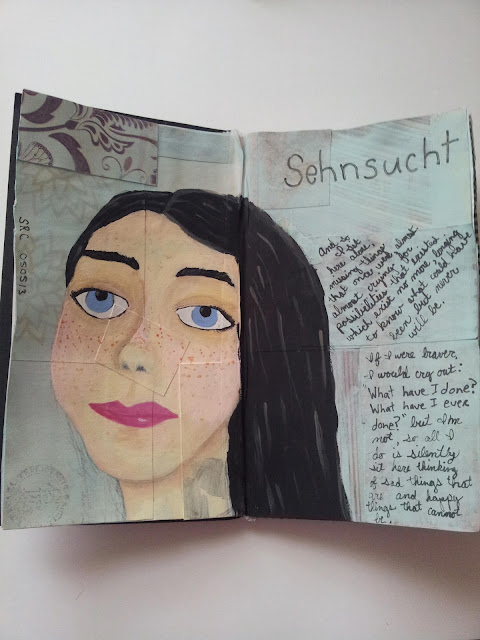 SRC 050513
Sehnsucht
And so
I sit
here alone,
missing things
that once were almost
almost crying for
possibilities that existed
which exist no more longing
to know what could have
been but never
will be.
If I were braver,
I would cry out:
"What have I done?
What have I ever
done?" but I'm
not, so all I
do is silently
sit here thinking
of sad things that
are and happy
things that cannot
be.